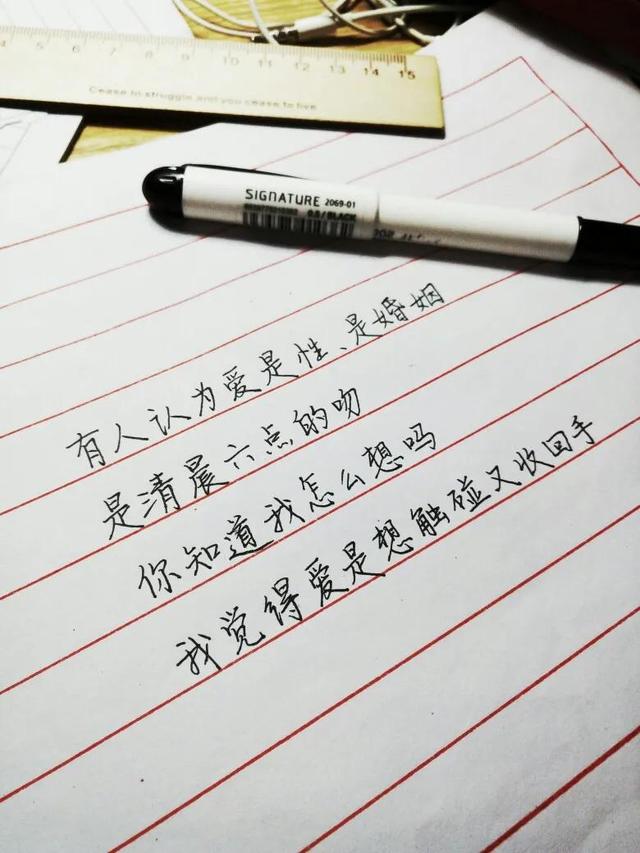 4 5 6 7 8 9 10 11 12 13 14 15
Cease to struggle and you cease to live
SIGNATURE 2069-01
0.5/BLACK
有人认为爱是性、是婚姻
是清晨六点的吻
你知道我怎么想吗
我觉得爱是想触碰又收回手